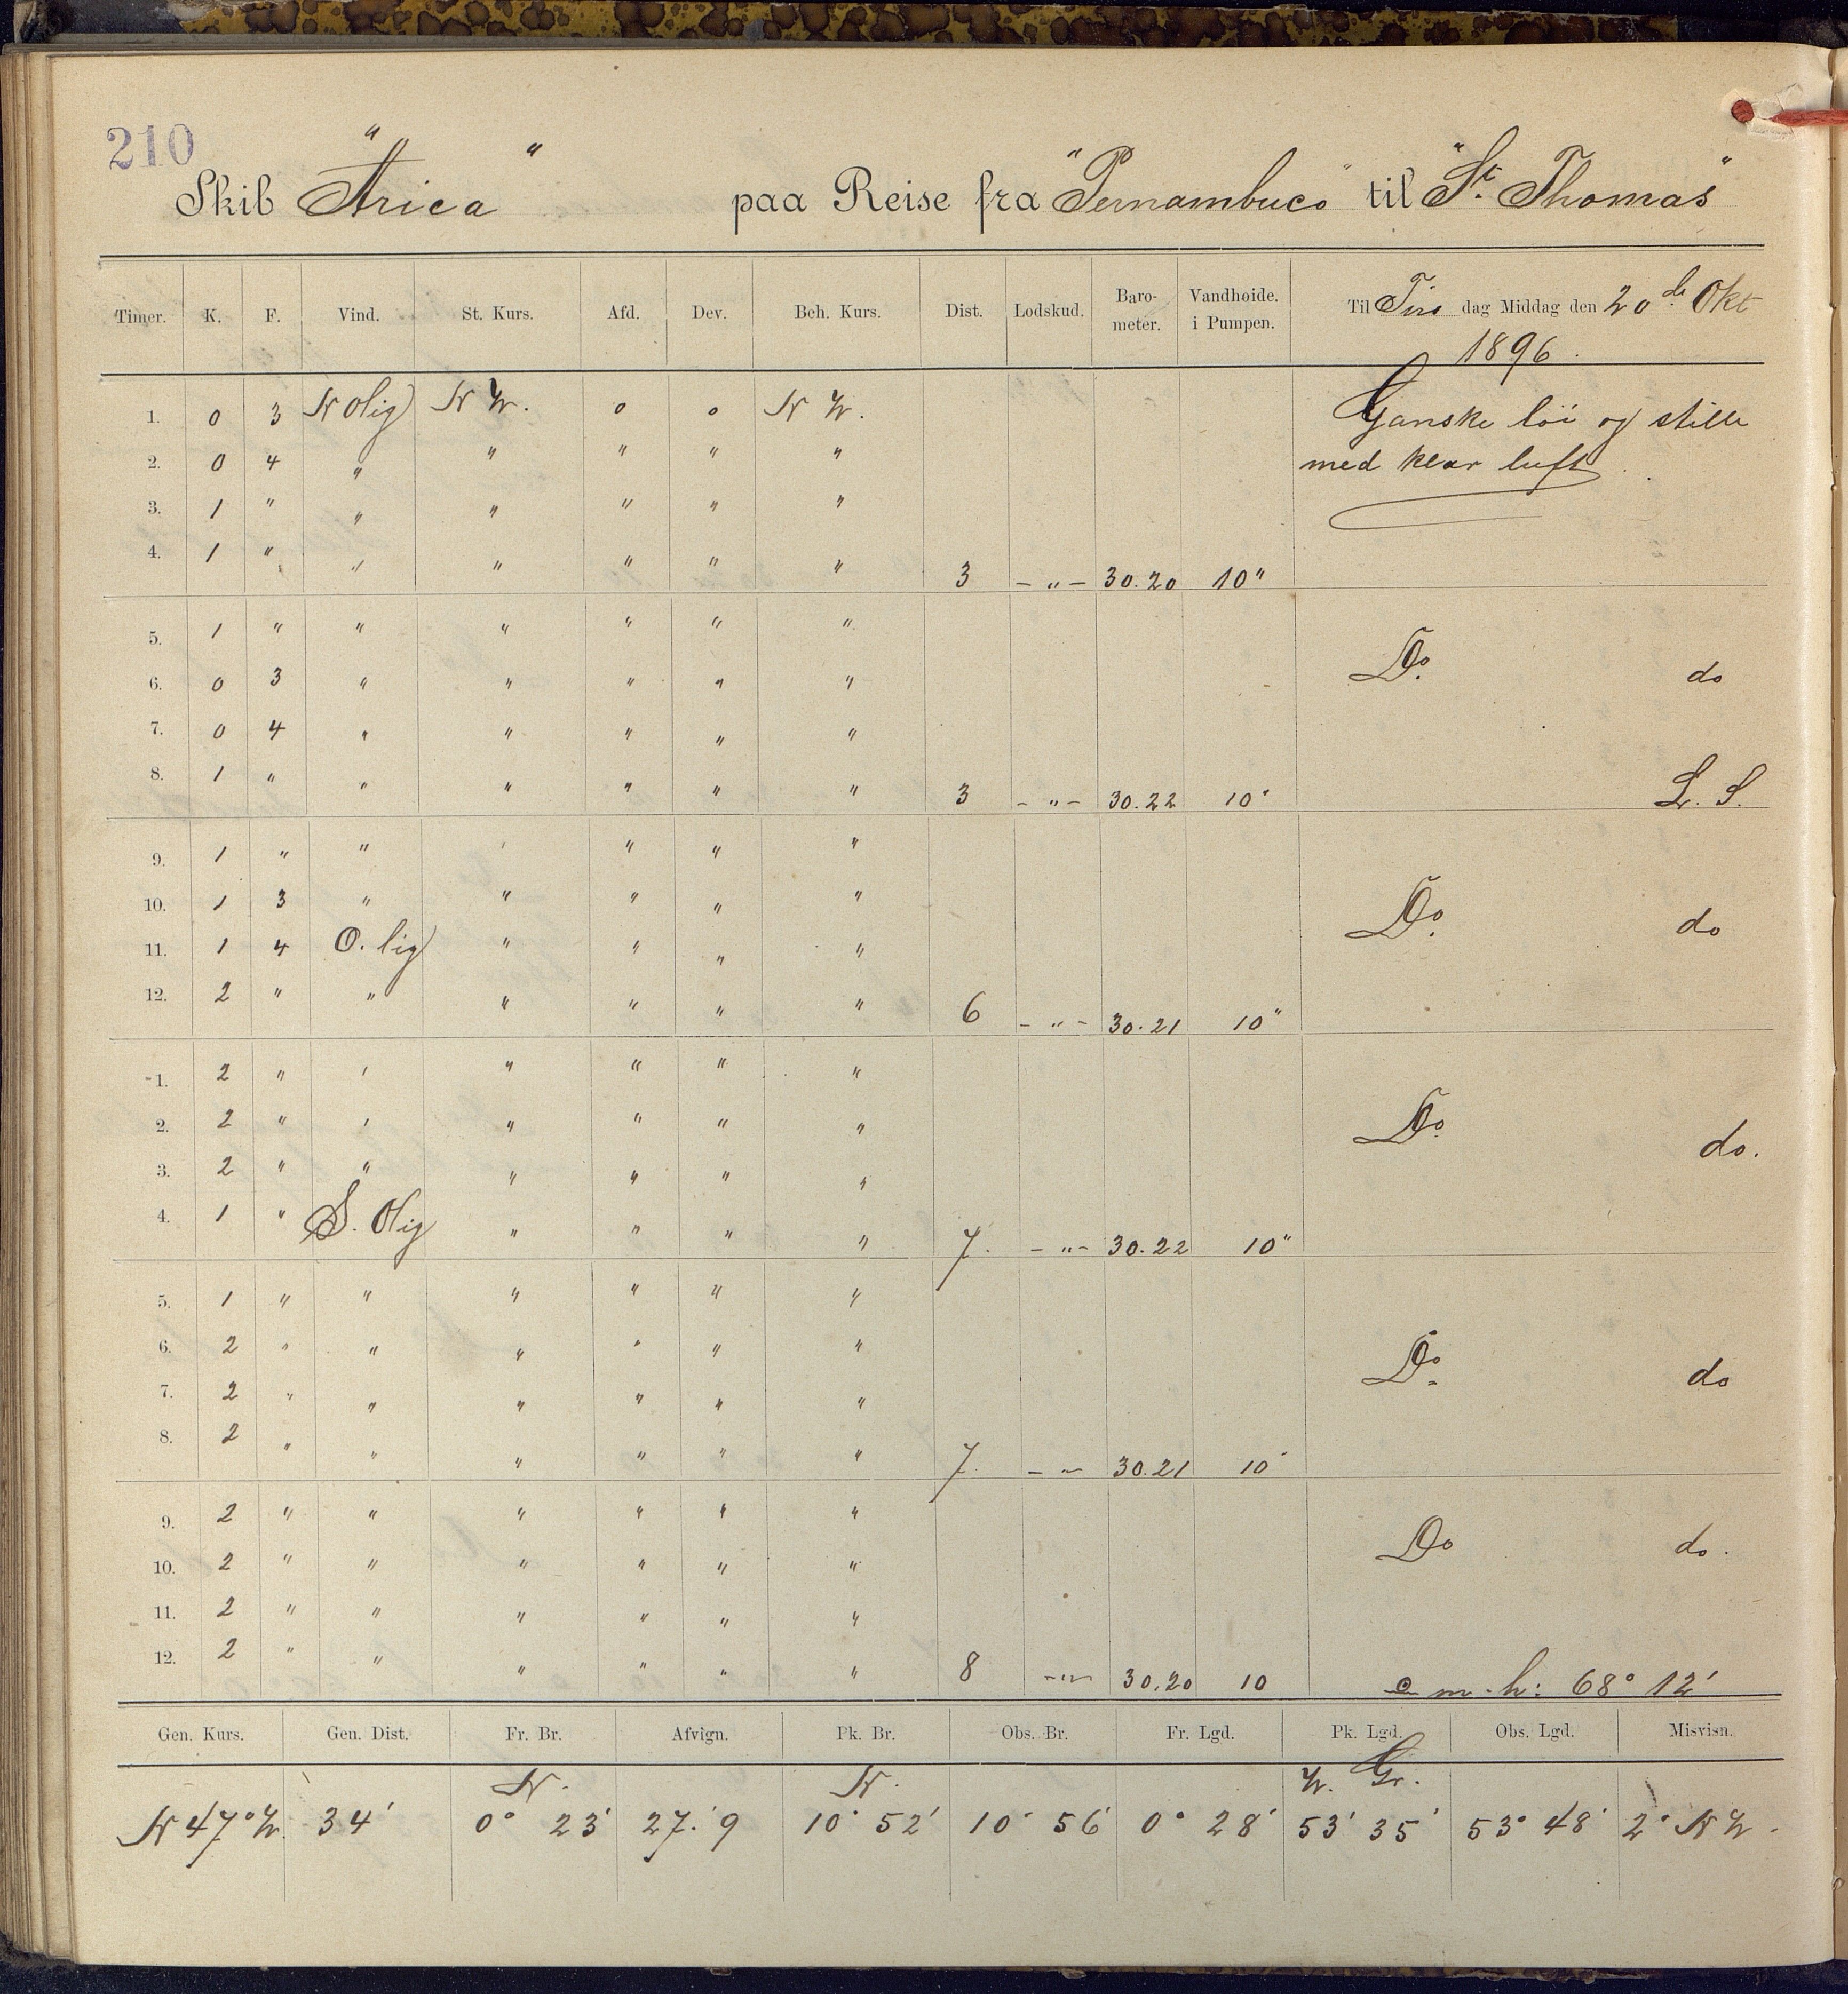 210
Skib "Arica" paa Reise fra "Pernambuco" til "St. Thomas"
Timer. K. F. Vind. St. Kurs. Afd. Dev. Beh. Kurs. Dist. Lodskud. Baro-meter. Vandhoide. i Pumpen. Til Tirs dag Middag den 20de Okt 1896.
1. 0 3 N Olig N W. 0 0 N W. Ganske löi og stille
2. 0 4 " " " " " med klar luft.
3. 1 " " " " " "
4. 1 " " " " " " 3 - " - 30.20 10"
5. 1 " " " " " "
6. 0 3 " " " " " Do. do
7. 0 4 " " " " "
8. 1 " " " " " " 3 - " - 30.22 10" L. S.
9. 1 " " " " " "
10. 1 3 " " " " " Do. do
11. 1 4 O. lig " " " "
12. 2 " " " " " " 6 - " - 30.21 10"
1. 2 " " " " " "
2. 2 " " " " " " Do. do.
3. 2 " " " " " "
4. 1 " S. Olig " " " " 7. - " - 30.22 10"
5. 1 " " " " " "
6. 2 " " " " " " Do. do
7. 2 " " " " " "
8. 2 " " " " " " 7. - " - 30.21 10"
9. 2 " " " " " "
10. 2 " " " " " " Do do.
11. 2 " " " " " "
12. 2 " " " " " " 8 - " - 30.20 10 m. h: 68° 12'
Gen. Kurs. Gen. Dist. Fr. Br. Afvign. Pk. Br. Obs. Br. Fr. Lgd. Pk. Lgd. Obs. Lgd. Misvisn.
N. N. W. Gr.
N 47° W. 34' 0° 23' 27.'9 10° 52' 10° 56' 0° 28' 53° 35' 53° 48' 2° N W.